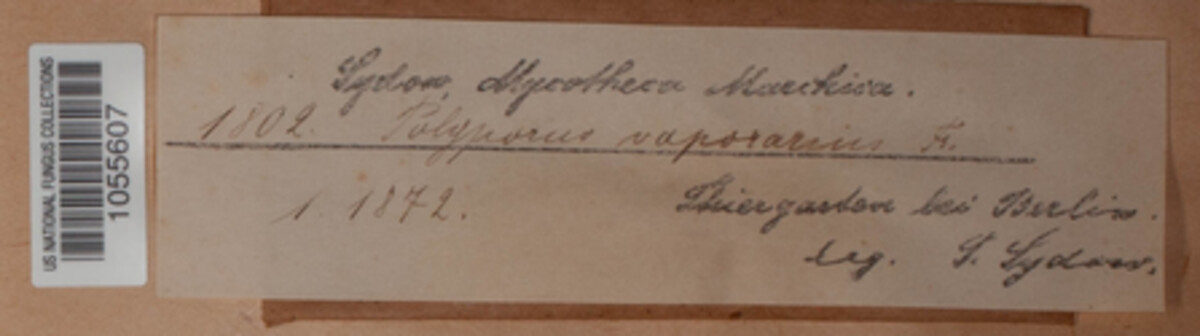 US NATIONAL FUNGUS COLLECTIONS
1055607
Sydow, Mycotheca Marchica.
1802. Polyporus vaporarius Fr.
1. 1872.
Thiergarten bei Berlin.
leg. P. Sydow.